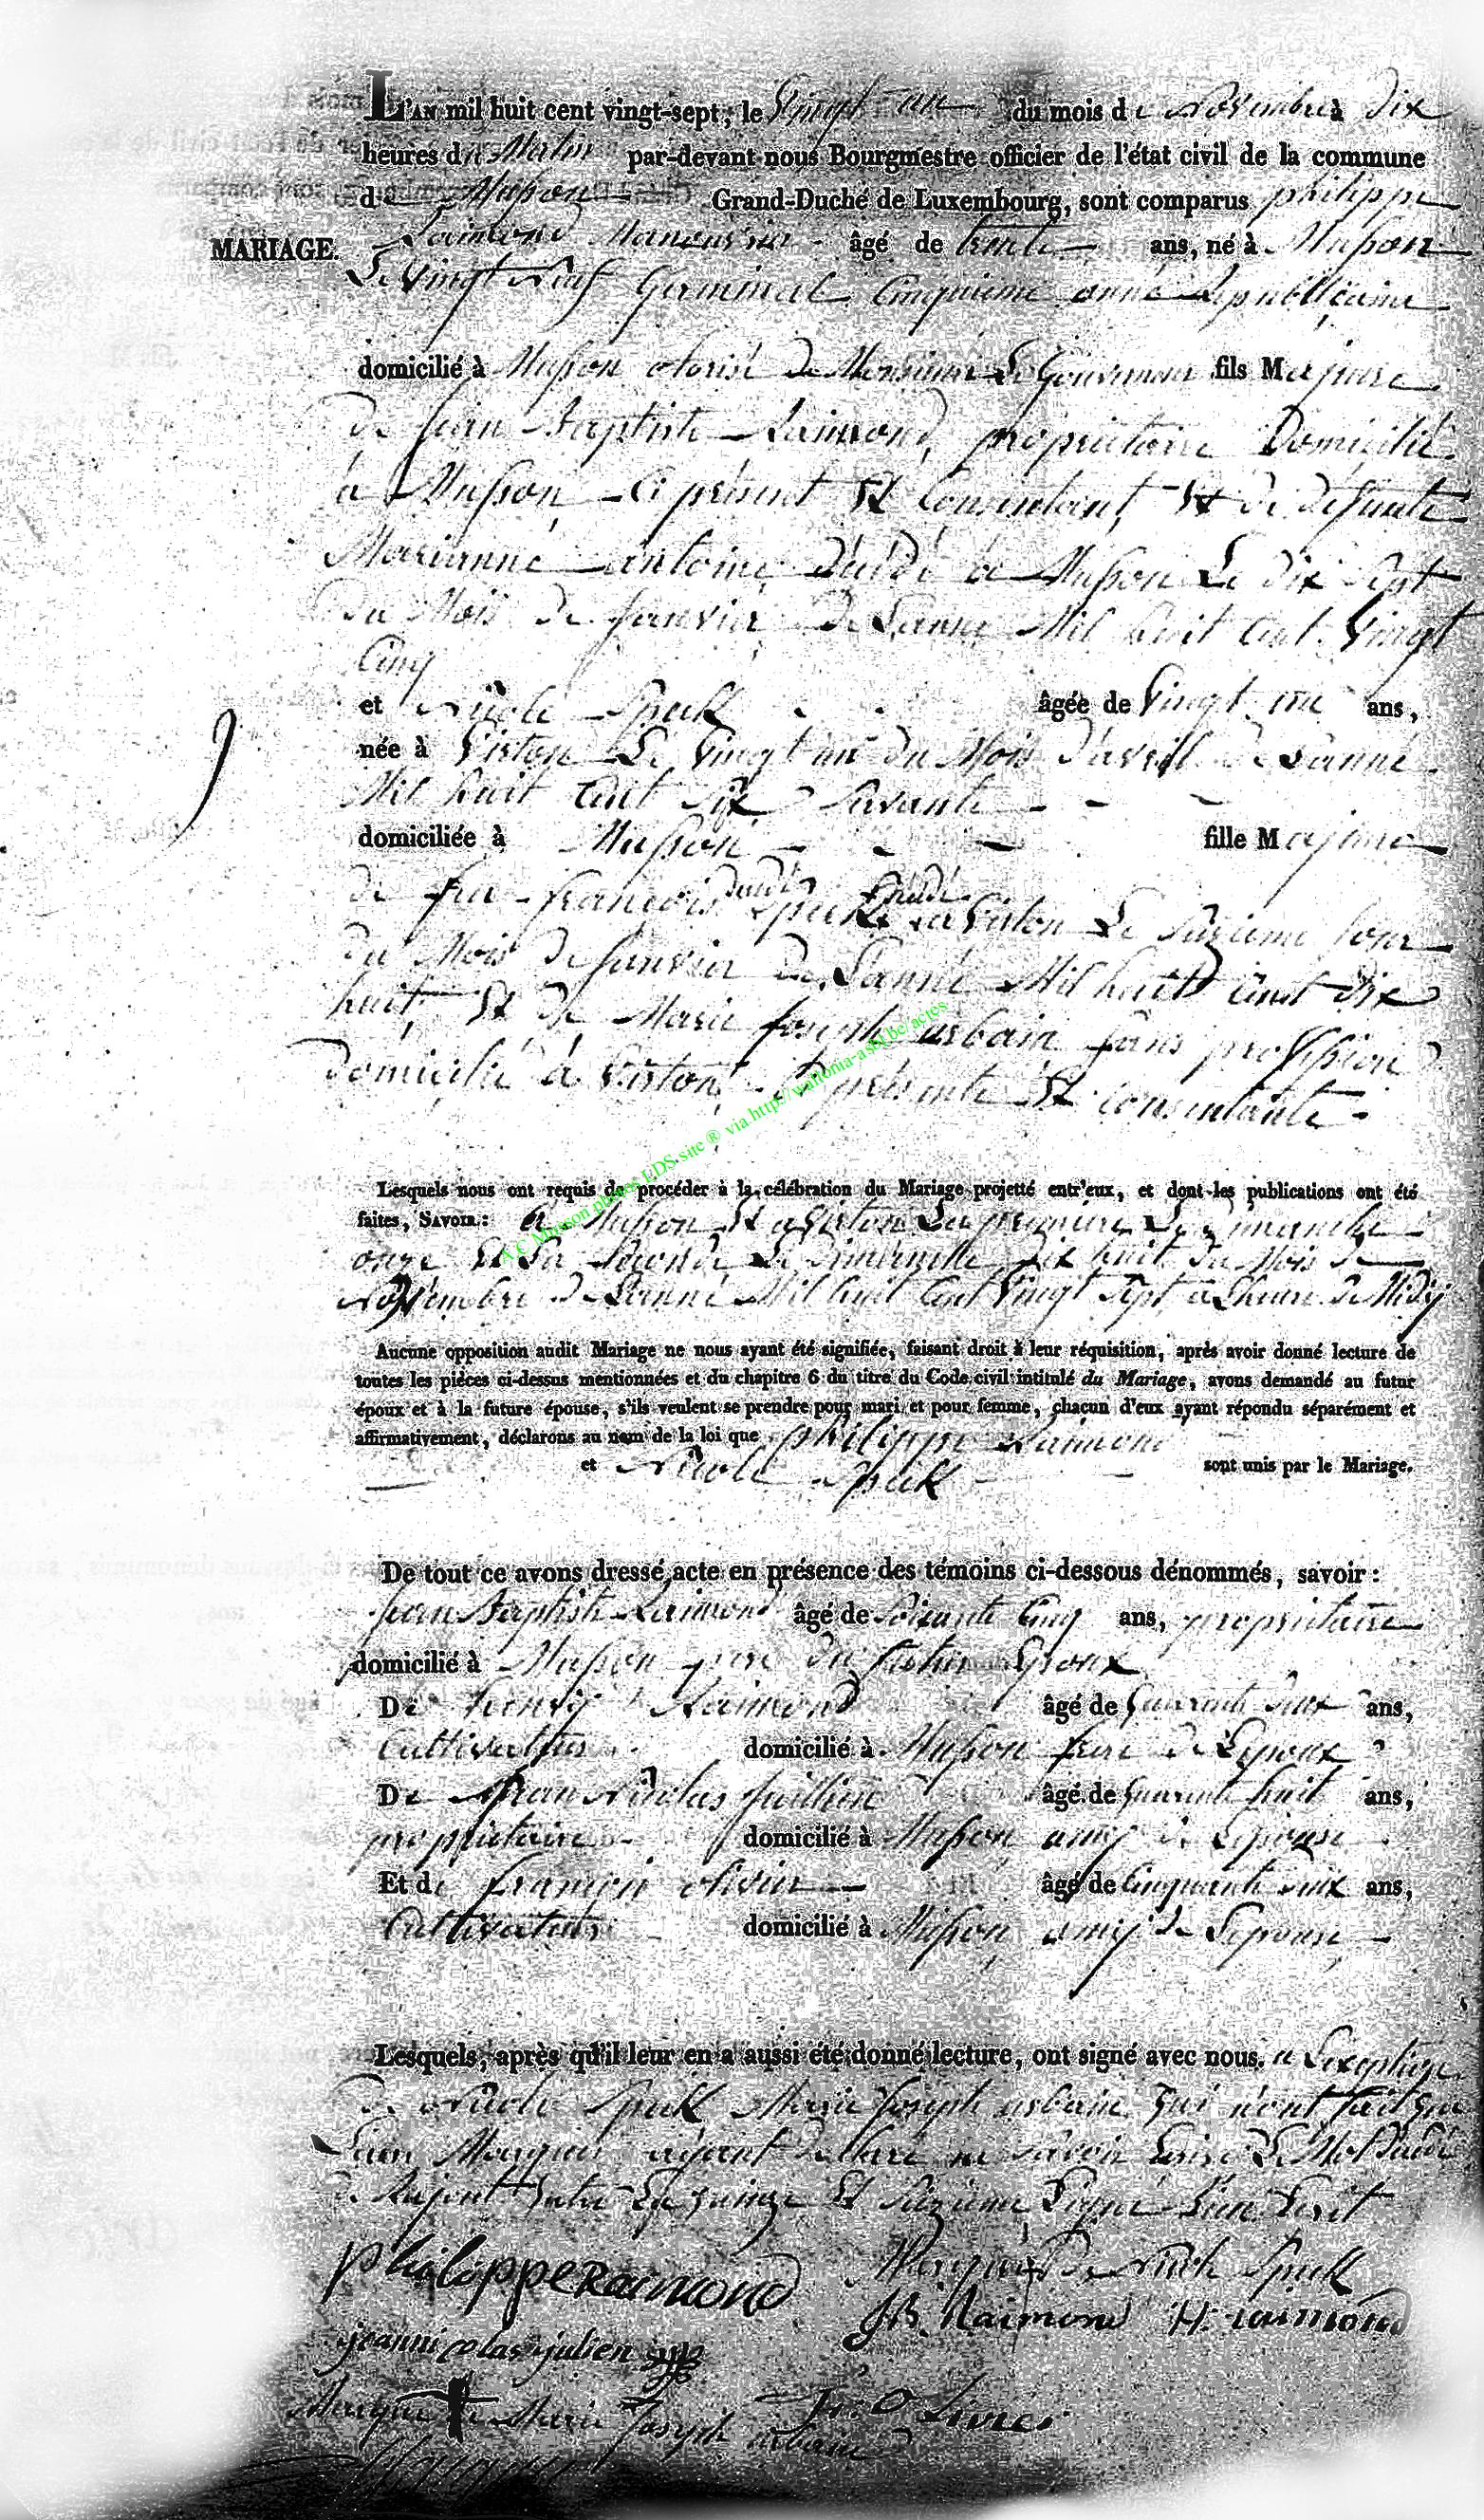 L'AN mil huit cent vingt-sept, le Vingt un du mois de Novembre à dix
heures du Matin par-devant nous Bourgmestre officier de l'état civil de la commune
de Musson Grand-Duché de Luxembourg, sont comparus philippe
MARIAGE. Raimond âgé de trente ans, né à Musson
Le vingt neuf Germinal Cinquieme année Republicaine
domicilié à Musson de Monsieur Le Gouverneur fils Majeure
de Jean Baptiste Raimond, propriétaire Domicilié
à Musson Ci présent Et Consentant, Et de défunte
Marianne antoine, dédé à Musson Le dix Sept
du Mois de Janvier, de Lanné Mil huit Cent Vingt
Cinq
et Nicole Speck âgée de Vingt un ans,
née à Virton Le Vingt un du Mois d'avrill de Lanné
Mil huit Cent Six
domiciliée à Musson fille Majeure
de feu françois Speck à Virton Le Jour
du Mois de Janvier de Lanné Mil huit Cent dix
huit Et de Marie Joseph urbain Sans proffession
Domicilié à Virton, Ci présente Et consentante.
A.C Musson photos LDS site ® via http://wallonia-asbl.be/actes
Lesquels nous ont requis de procéder à la célébration du Mariage projetté entr'eux, et dont les publications ont été
faites, SAVOIR: à Musson Et à Virton La premiere Le Dimanche
onze Et La Seconde Le dix huit du Mois de
Novembre de Lanné Mil huit Cent Vingt Sept a Lheure de Midy
Aucune opposition audit Mariage ne nous ayant été signifiée, faisant droit à leur réquisition, après avoir donné lecture de
toutes les pièces ci-dessus mentionnées et du chapitre 6 du titre du Code civil intitulé du Mariage, avons demandé au futur
époux et à la future épouse, s'ils veulent se prendre pour mari et pour femme, chacun d'eux ayant répondu séparément et
affirmativement, déclarons au nom de la loi que philippe Raimond
et Nicole Speck sont unis par le Mariage.
De tout ce avons dressé acte en présence des témoins ci-dessous dénommés, savoir:
Jean Baptiste Raimond âgé de Soixante Cinq ans, propriétaire
domicilié à Musson pere du Epoux
De henry Raimond âgé de quarante deux ans,
Cultivateur domicilié à Musson frere de Lepoux
De Jean Nicolas Juillien âgé de quarante huit ans,
propriétaire domicilié à Musson amij de Lepouse
Et de françois olivier âgé de Cinquante deux ans,
Cultivateur domicilié à Musson amij de Lepouse
Lesquels, après qu'il leur en a aussi été donné lecture, ont signé avec nous. a Lexeption
de Nicole Speck Marie Joseph urbain qui n'ont fait que
Leur Marque ayant de Clare ne Savoir Ecrire Le Mot
Entre La quinze Et Seizieme Ligne
philippe Raimond Marque de Nicole Speck
JB. Raimond H. raimond
jean nicolas julien
Marque de Marie Joseph urbain Fr. Olivier